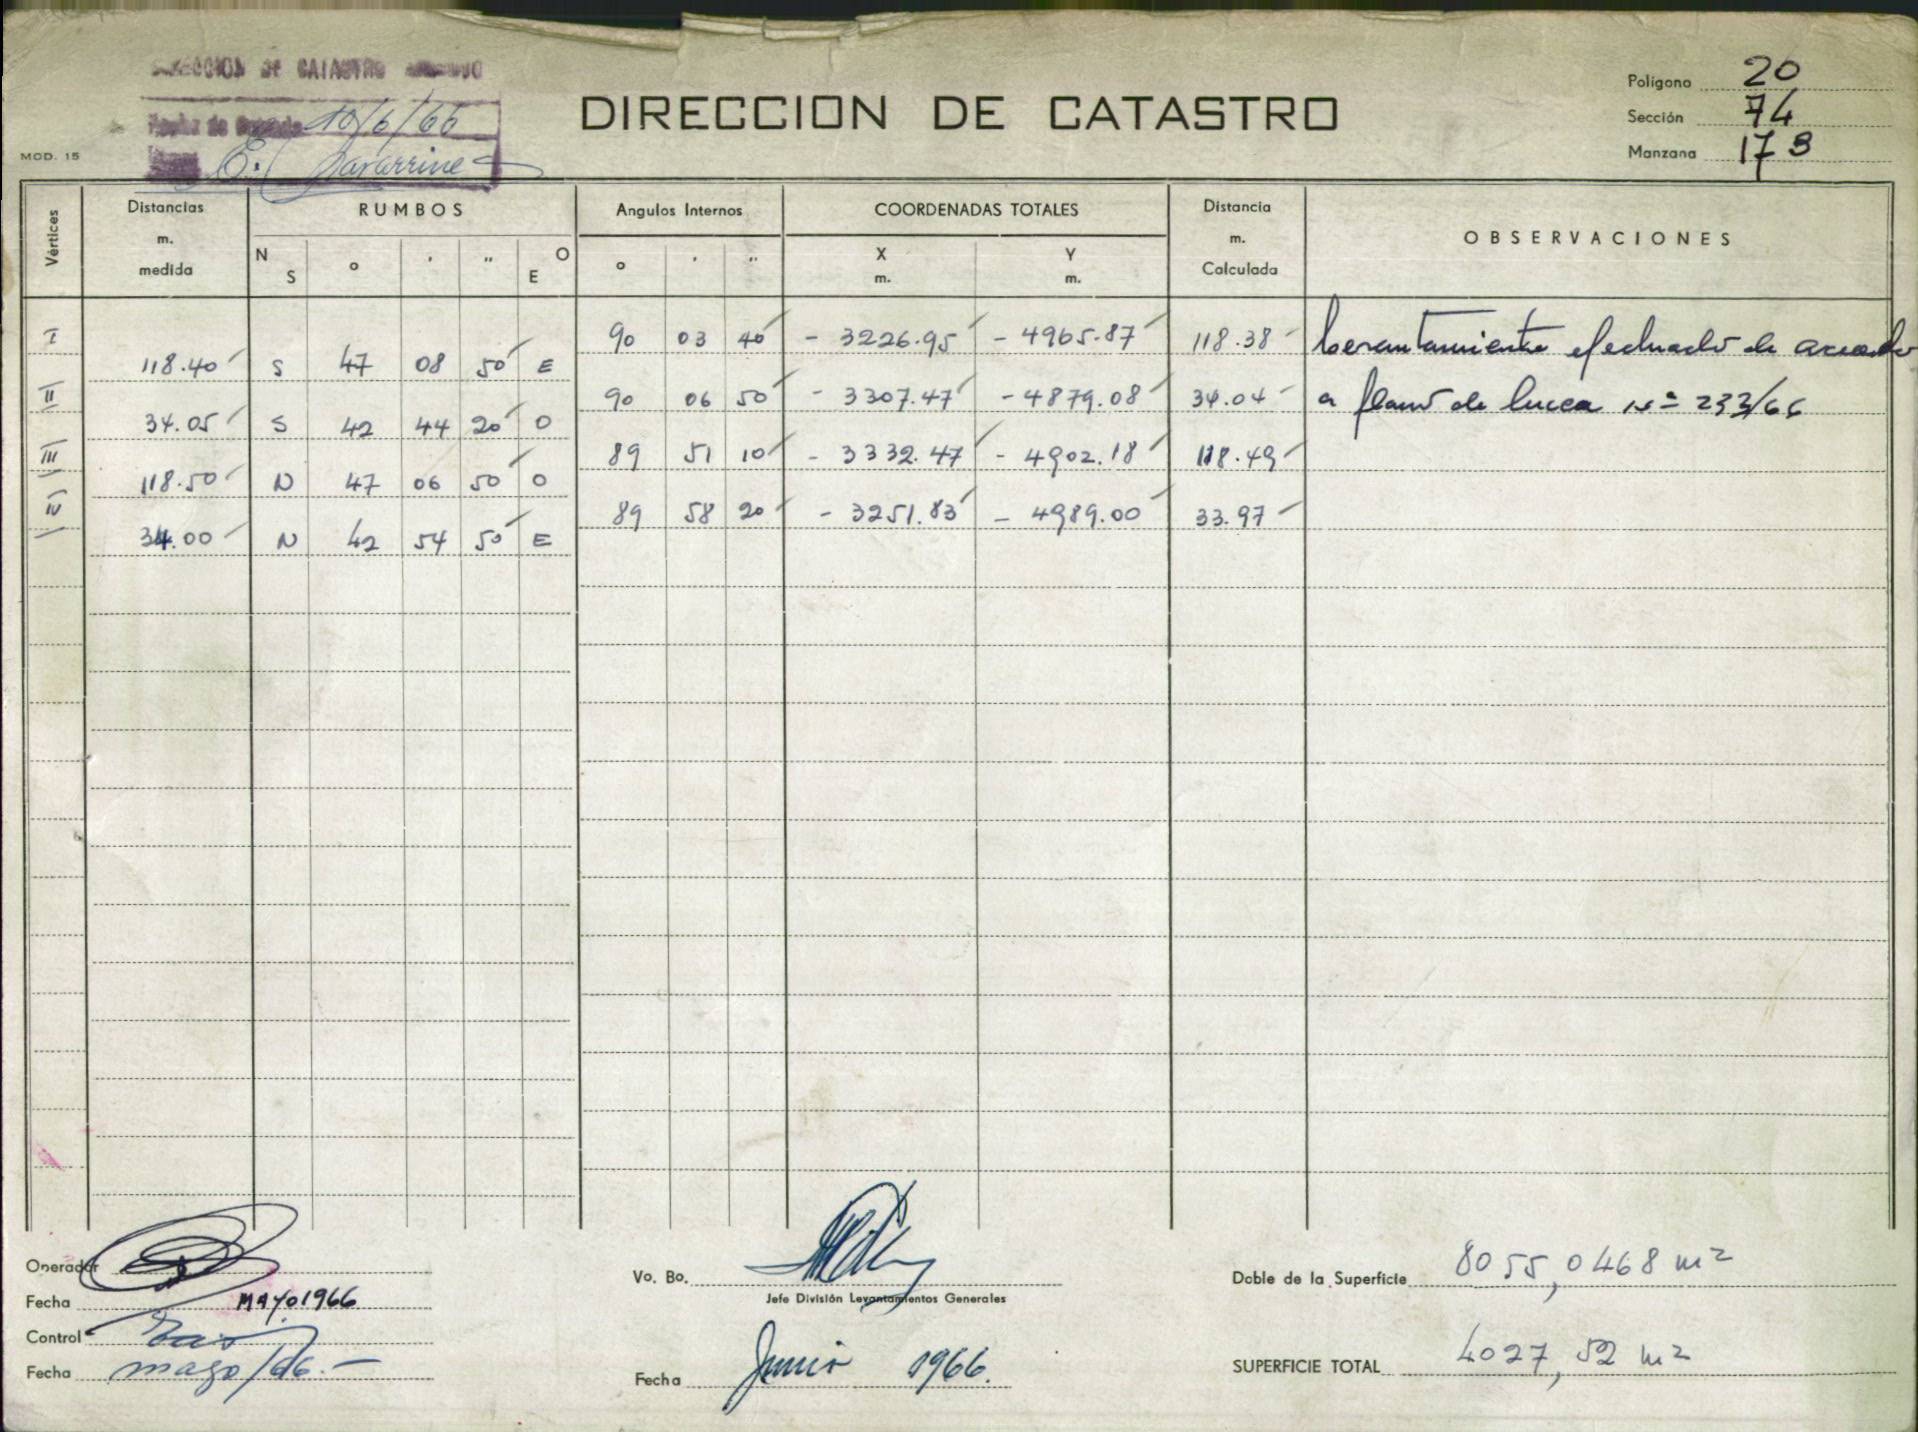 DIRECCION DE CATASTRO
10/6/66
DIRECCION DE CATASTRO
Polígono 20
Sección 74
Manzana 173
MOD. 15
Vértices Distancias m. medida RUMBOS Angulos Internos COORDENADAS TOTALES Distancia m. Calculada OBSERVACIONES
N S ° ' " O E ° ' " X m. Y m.
I 90 03 40 - 3226.95 - 4965.87 118.38 Levantamiento efectuado de acuerdo
118.40 S 47 08 50 E
II 90 06 50 - 3307.47 - 4879.08 34.04 a plano de linea Nº 233/66
34.05 S 42 44 20 O
III 89 51 10 - 3332.47 - 4902.18 118.49
118.50 N 47 06 50 O
IV 89 58 20 - 3251.83 - 4989.00 33.97
34.00 N 42 54 50 E
Operador
Fecha MAYO 1966
Control
Fecha mayo/66.-
Vo. Bo.
Jefe División Levantamientos Generales
Fecha Junio 1966.
Doble de la Superficie 8055,0468 m2
SUPERFICIE TOTAL 4027,52 m2